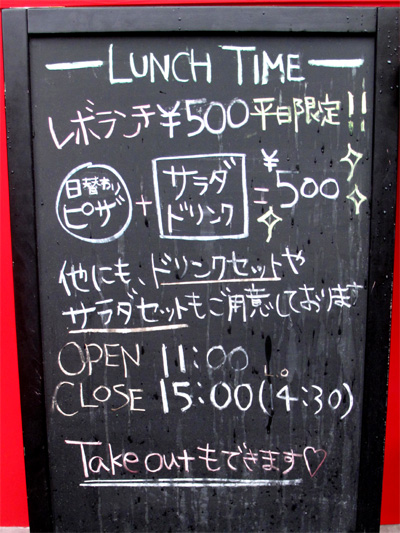 LUNCH TIME
レボランチ¥500平日限定!!
日替わり
ピザ
+
サラダ
ドリンク
=
¥500
他にも、ドリンクセットや
サラダセットもご用意しております
OPEN 11:00
CLOSE 15:00(4:30)
L.O.
Take outもできます♡